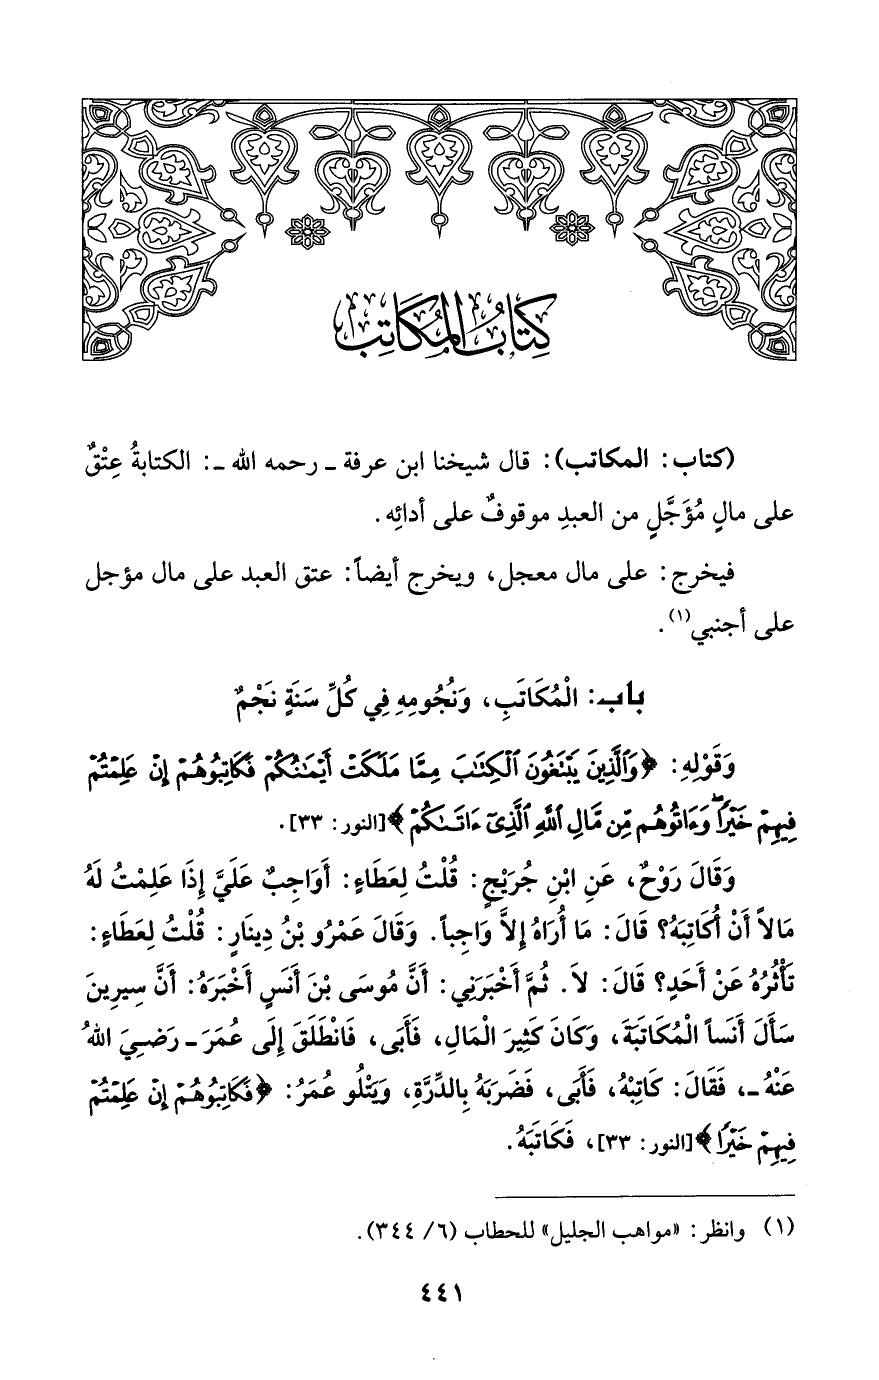 كِتَابُ المُكَاتِب
(كتاب: المكاتب): قال شيخنا ابن عرفة ـ رحمه الله ـ: الكتابةُ عِتْقٌ
على مالٍ مُؤَجَّلٍ من العبدِ موقوفٌ على أدائِه.
فيخرج: على مال معجل، ويخرج أيضاً: عتق العبد على مال مؤجل
على أجنبي(١).
باب: الْمُكَاتَبِ، وَنُجُومِهِ فِي كُلِّ سَنَةٍ نَجْمٌ
وَقَوْلِهِ: ﴿وَٱلَّذِينَ يَبْتَغُونَ ٱلْكِتَٰبَ مِمَّا مَلَكَتْ أَيْمَٰنُكُمْ فَكَاتِبُوهُمْ إِنْ عَلِمْتُمْ
فِيهِمْ خَيْرًا ۖ وَءَاتُوهُم مِّن مَّالِ ٱللَّهِ ٱلَّذِىٓ ءَاتَىٰكُمْ﴾ [النور: ٣٣].
وَقَالَ رَوْحٌ، عَنِ ابْنِ جُرَيْجٍ: قُلْتُ لِعَطَاءٍ: أَوَاجِبٌ عَلَيَّ إِذَا عَلِمْتُ لَهُ
مَالاً أَنْ أُكَاتِبَهُ؟ قَالَ: مَا أُرَاهُ إِلاَّ وَاجِباً. وَقَالَ عَمْرُو بْنُ دِينَارٍ: قُلْتُ لِعَطَاءٍ:
تَأْثُرُهُ عَنْ أَحَدٍ؟ قَالَ: لاَ. ثُمَّ أَخْبَرَنِي: أَنَّ مُوسَى بْنَ أَنَسٍ أَخْبَرَهُ: أَنَّ سِيرِينَ
سَأَلَ أَنَساً الْمُكَاتَبَةَ، وَكَانَ كَثِيرَ الْمَالِ، فَأَبَى، فَانْطَلَقَ إِلَى عُمَرَ ـ رَضِيَ اللهُ
عَنْهُ ـ، فَقَالَ: كَاتِبْهُ، فَأَبَى، فَضَرَبَهُ بِالدِّرَّةِ، وَيَتْلُو عُمَرُ: ﴿فَكَاتِبُوهُمْ إِنْ عَلِمْتُمْ
فِيهِمْ خَيْرًا﴾ [النور: ٣٣]، فَكَاتَبَهُ.
(١) وانظر: «مواهب الجليل» للحطاب (٦/ ٣٤٤).
٤٤١